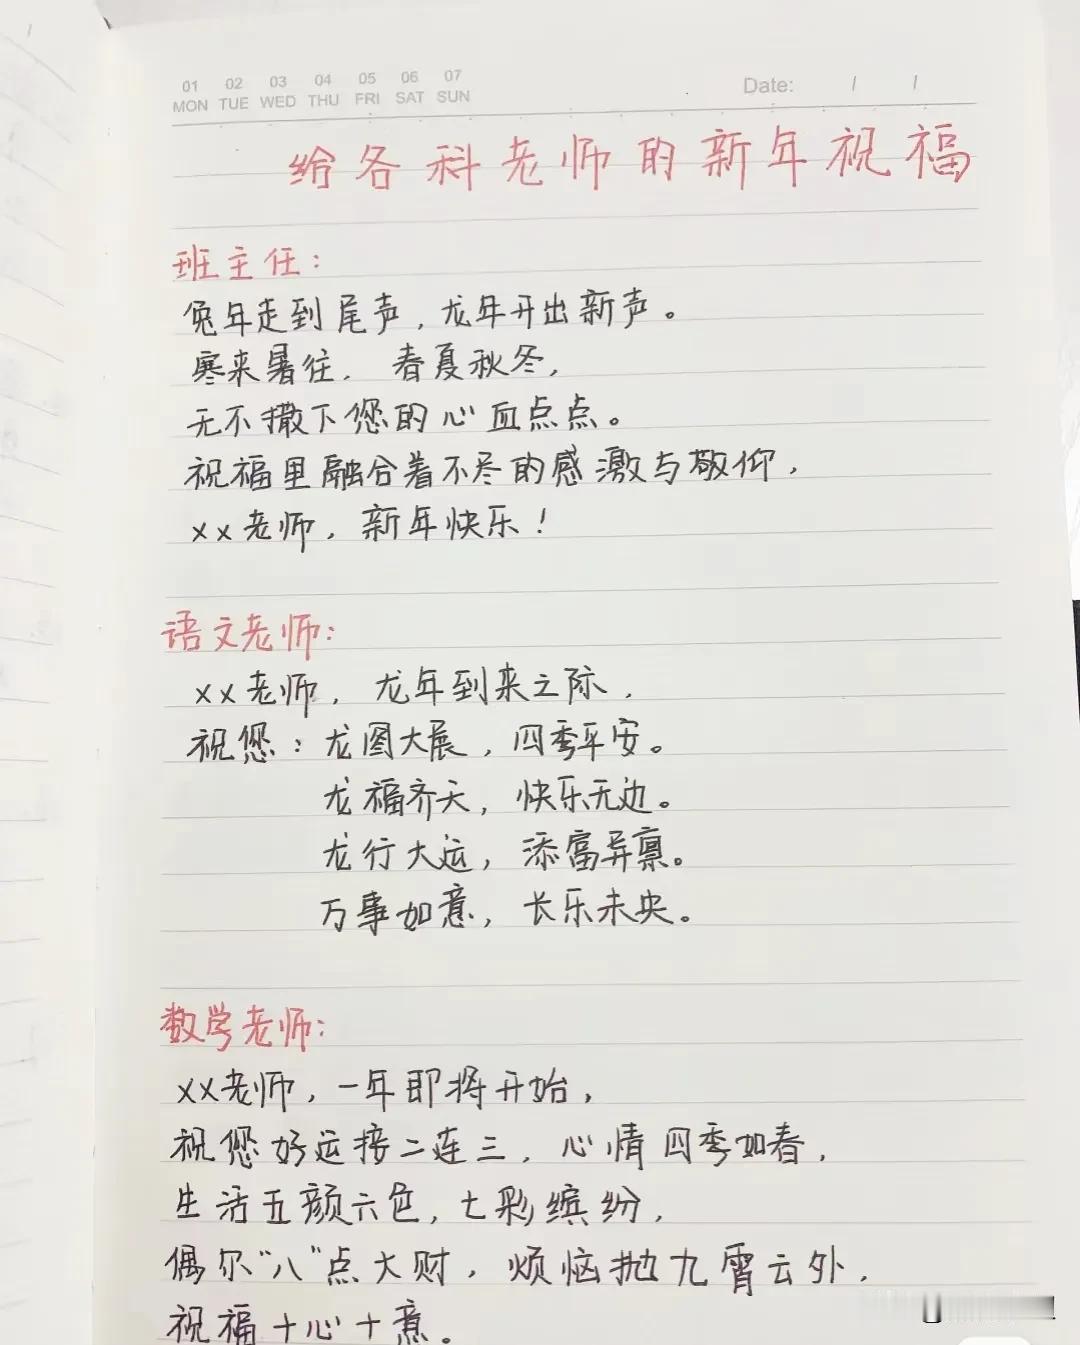 01 02 03 04 05 06 07
MON TUE WED THU FRI SAT SUN
Date: / /
给各科老师的新年祝福
班主任：
兔年走到尾声，龙年开出新声。
寒来暑往，春夏秋冬，
无不撒下您的心血点点。
祝福里融合着不尽的感激与敬仰，
xx老师，新年快乐！
语文老师：
xx老师，龙年到来之际，
祝您：龙图大展，四季平安。
龙福齐天，快乐无边。
龙行大运，添富异禀。
万事如意，长乐未央。
数学老师：
xx老师，一年即将开始，
祝您好运接二连三，心情四季如春，
生活五颜六色，七彩缤纷，
偶尔“八”点大财，烦恼抛九霄云外，
祝福十心十意。